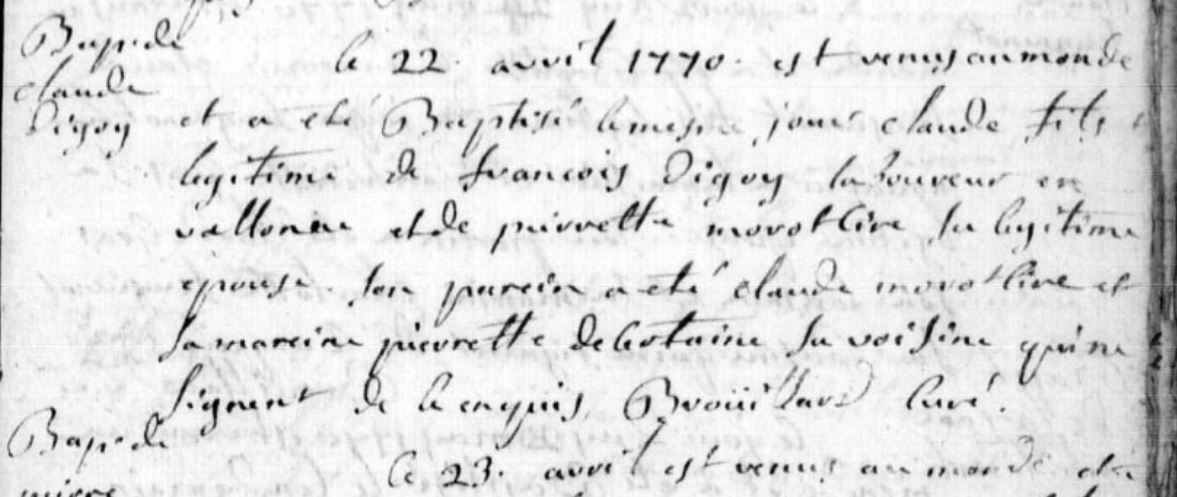 Bap. de
claude
Digoy
le 22. avril 1770. est venus au monde
et a eté Baptisé le mesme jour claude fils
legitime de francois Digoy laboureur en
vallonne et de pierrette morot live sa legitime
epouse. son parein a eté claude morot live et
sa mareine pierrette debotaine sa voisine qui ne
signent de ce enquis, Broüillard Curé.
Bap. de
le 23. avril est venus au monde et a